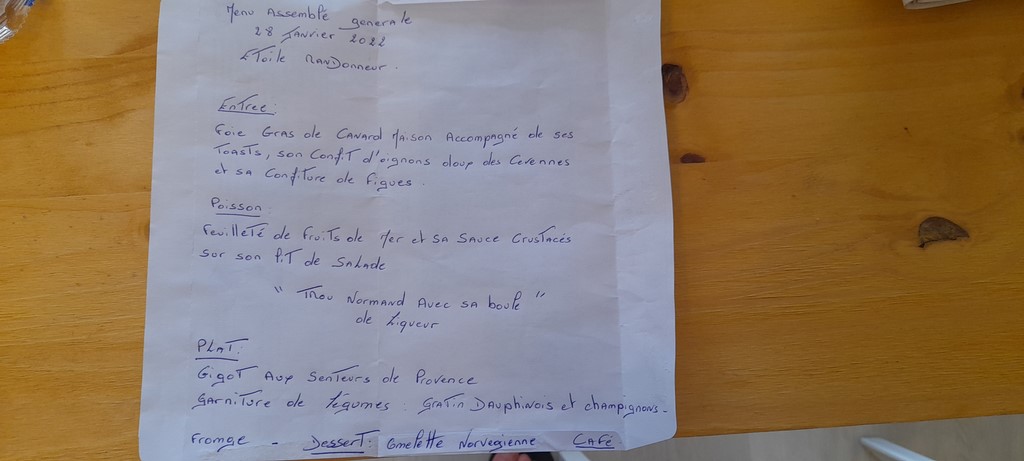 Menu Assemblé generale
28 Janvier 2022
Etoile Randonneur.
Entree:
Foie Gras de Canard Maison Accompagné de ses
Toasts, son Confit d'oignons doux des Cevennes
et sa Confiture de Figues.
Poisson:
Feuilleté de Fruits de Mer et sa Sauce Crustacés
sur son Pit de Salade
" Trou Normand Avec sa boule "
de Liqueur
Plat:
Gigot Aux Senteurs de Provence
Garniture de légumes: Gratin Dauphinois et champignons-
Fromge - Dessert: Omelette Norvegienne Café